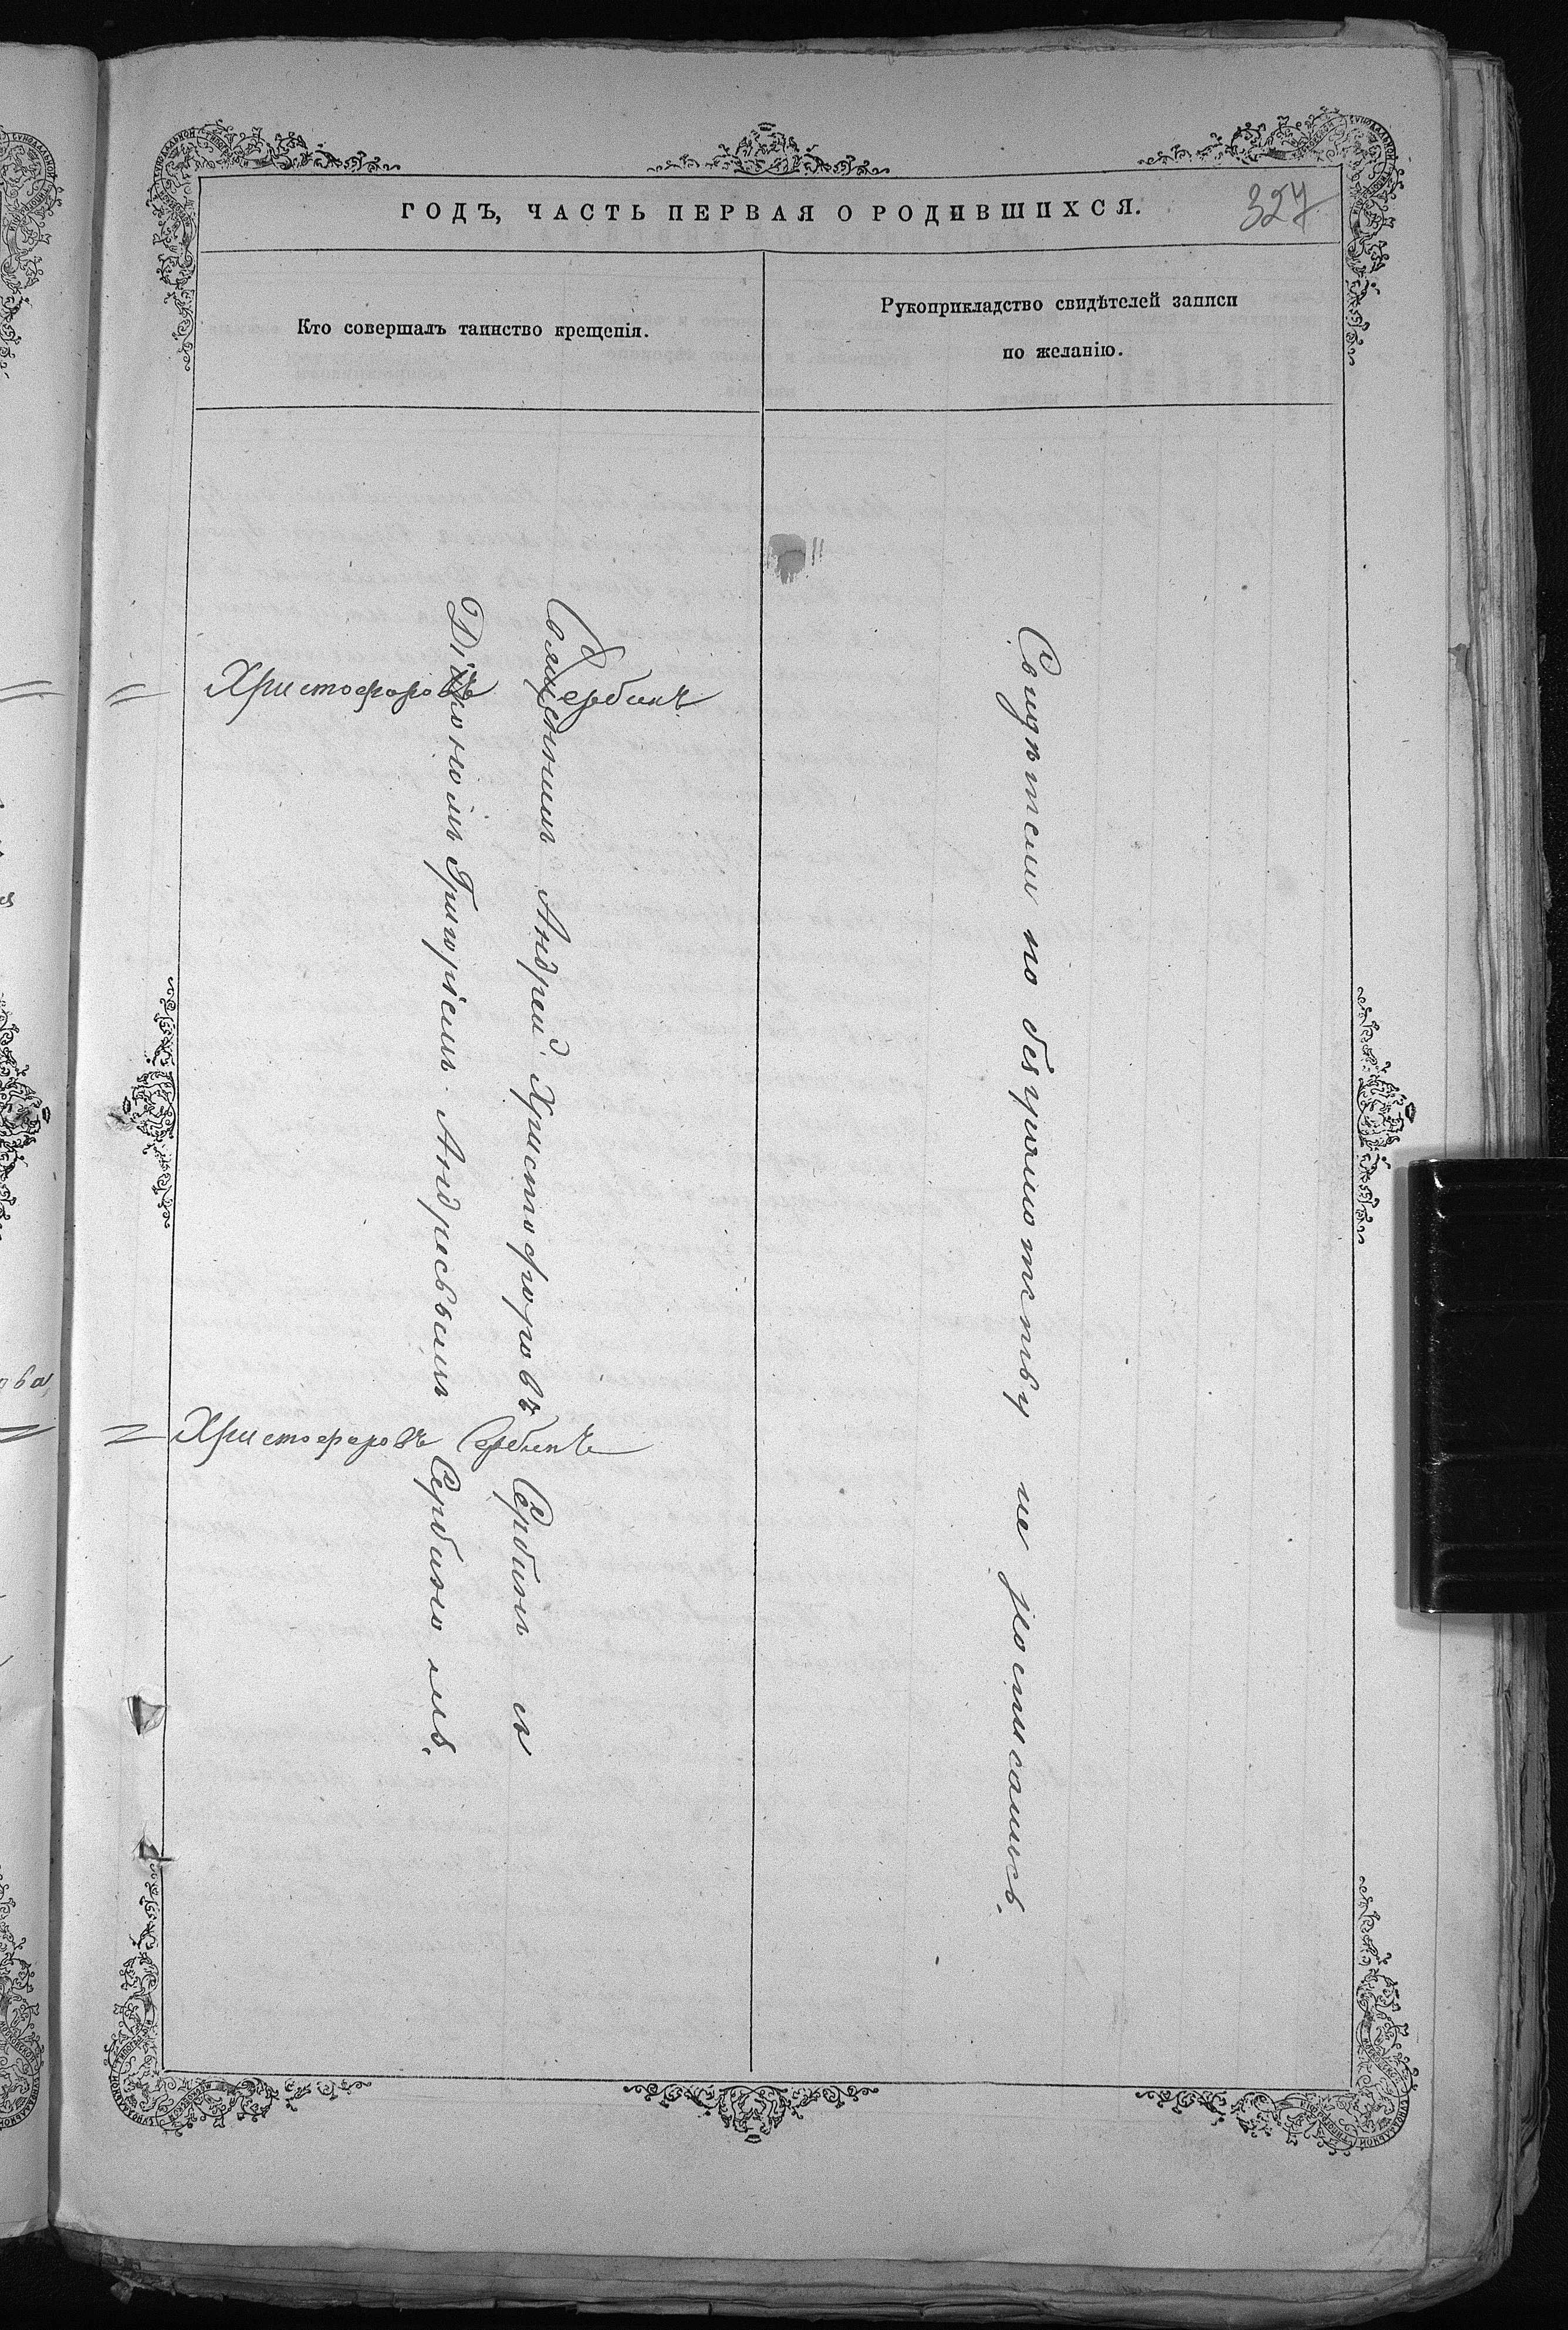 ГОДЪ, ЧАСТЬ ПЕРВАЯ О РОДИВШИХСЯ.
327
Кто совершалъ таинство крещенія.
Рукоприкладство свидѣтелей записи
по желанію.
Христофоровъ Сербинъ
Священникъ Андрей Христофоровъ Сербинъ съ
Діакономъ Григоріемъ Андреевымъ Сербиномъ.
Христофоровъ Сербинъ
Свидѣтели по безграмотству не росписались.